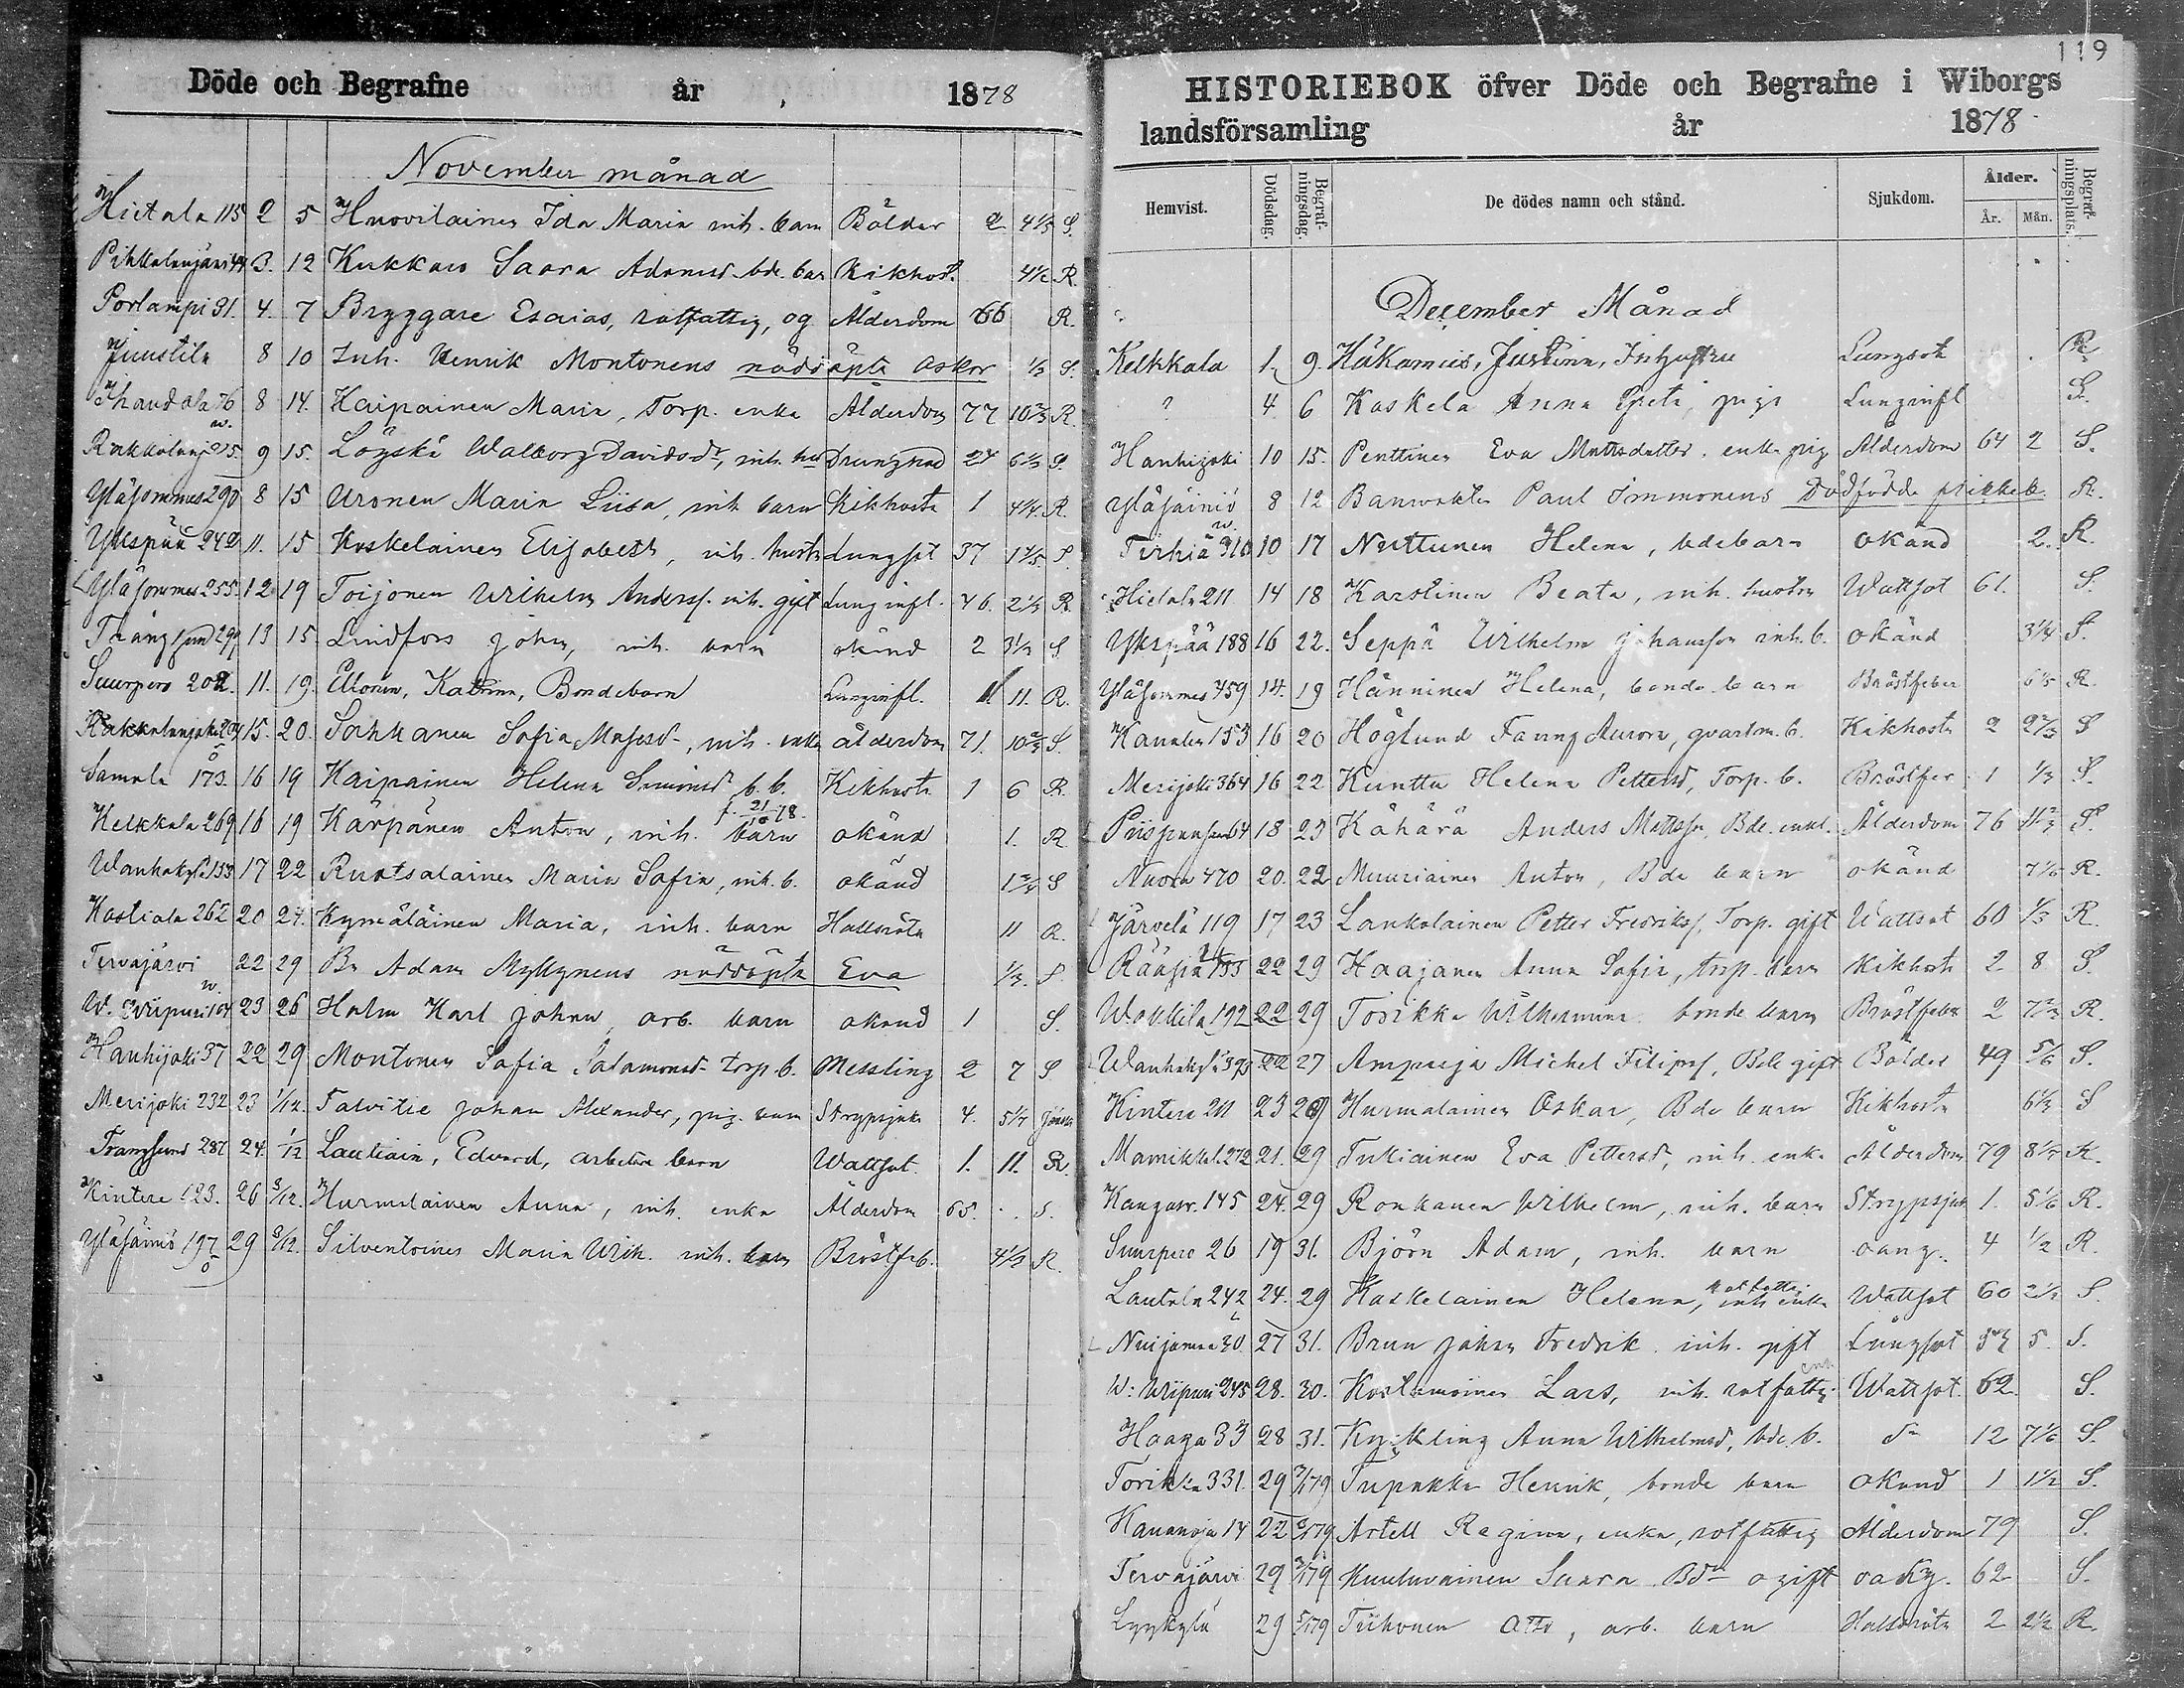 Döde och Begrafne år 1878
November månad
Hietala 115 2 5 Huovilainen Ida Maria inh. barn Bölder 2 4 1/3 S.
Pihkalanjärvi 44 3. 12 Kukkaro Saara Adamsd. bde. bar Kikhost. 4 1/2 R.
Porlampi 31. 4. 7 Bryggare Esaias, rotfattig, og Ålderdom 66 R.
Juustila 8 10 Inh. Henrik Montonens nöddöpta Oskar 1/2 S.
Ihandala 76 8 14. Kaipainen Maria, Torp. enka Ålderdom 77 10 2/3 R.
9 15. Löyskä Walborg Davidsdr, inh. 24 6 1/3 S.
Yläsommes 290 8 15 Uronen Maria Liisa, inh barn Kikhosta 1 4 1/4 R.
Ykspää 242 11. 15 Koskelainen Elisabeth, inh. hustr Lungsot 37 1 2/5 S.
Yläsommes 255. 12 19 Toijonen Wilhelm Anderss. inh. gift Lunginfl. 46. 2 1/3 R
Trångsund 299 13 15 Lindfors Johan, inh. barn okänd 2 3 1/3 S
Suurpero 202. 11. 19. Ellonen, Katrina, Bondebarn Lunginfl. 11. R.
15. 20. Sorhkanen Sofia Matsd., inh. enka ålderdom 71. 10 2/3 S.
Samola 173. 16 19 Kaipainen Helena Simonsd b. b. Kikhosta 1 6 R.
f. 21/10 78.
Kelkkala 269 16 19 Kärpänen Anton, inh. barn okänd 1. R
Wanhakylä 153 17 22 Ruotsalainen Maria Sofia, inh. b. okänd 1 3/4 S
Kostiala 262 20 24. Kymäläinen Maria, inh. barn Hallsröta 11 R.
Tervajärvi 22 29 Bn Adam Myllynens nöddöpta Eva 1/3. S.
W. Wiipuri 104 23 26 Holm Karl Johan, arb. barn okänd 1 S.
Hanhijoki 37 22 29 Montonen Sofia Salamonsd. torp. b. Messling 2 7 S
Merijoki 232 23 1/12. Talvitie Johan Alexander, pig. barn Strypsjuka 4. 5 1/4
Trangsund 287 24. 1/12 Lautiain, Edvard, arbetare barn Wattsot. 1. 11. R.
Kintere 123. 26 3/12. Hurmalainen Anna, inh. enka Ålderdom 65. S.
Yläsäiniö 197 29 8/12. Silventoinen Maria Wilh. inh. barn Bröstfeb. 4 1/3 R.
119
HISTORIEBOK öfver Döde och Begrafne i Wiborgs
landsförsamling år 1878.
Hemvist. Dödsdag. Begrafningsdag. De dödes namn och stånd. Sjukdom. Ålder. År. Mån. Begrafningsplats.
December Månad
Kelkkala 1. 9. Häkamies, Justiina, Lungsot R.
? 4. 6 Koskela Anna Greta, piga Lunginfl S.
Hanhijoki 10 15. Penttinen Eva Mattsdotter. enka pig Ålderdom 64 2 S.
Yläsäiniö 8 12 Banvakten Paul Immonens Dödfödda flickeb. R.
Tirhiä 310 10 17 Nuttunen Helena, bdebarn okänd 2. R.
Hietala 211 14 18 Karstinen Beata, inh. hustru Wattsot 61. S.
Ykspää 188 16 22. Seppä Wilhelm Johansson inh. b. okänd 3 1/4 S.
Yläsommes 459 14. 19 Hänninen Helena, bonde barn Bröstfeber 6 1/5 R.
Kananoja 153 16 20 Höglund Fanny Aurora, qvartm. b. Kikhosta 2 2 2/3 S
Merijoki 364 16 22 Kunttu Helena Pettersd, Torp. b. Bröstfeb 1 1/3 S.
64 18 23 Kähärä Anders Mattsson, Bde. enkl. Ålderdom 76 11 2/3 S.
Nuora 470 20. 22 Muuriainen Anton, Bde barn okänd 7 1/6 R.
Järvelä 119 17 23 Lankolainen Petter Fredriks. Torp. gift Wattsot 60 1/3 R.
22 29 Haajanen Anna Sofia, torp. barn Kikhosta 2 8 S.
Wakkila 192 22 29 Torikka Wilhelmina bonde barn Bröstfeber 2 7 2/3 R.
Wanhakylä 393 22 27 Ampuja Michel Filipss, Bde gift Bölder 49 5/6 S.
Kintere 211 23 29 Hurmalainen Oskar, Bde barn Kikhosta 6 1/3 S
Mamikkal. 272 21. 29 Tukiainen Eva Pettersd, inh. enka Ålderdom 79 8 1/3 R.
Kangasr. 145 24. 29 Ronkanen Wilhelm, inh. barn Strypsjuk 1. 5 1/6 R.
Suurpero 26 19 31. Björn Adam, inh. barn oang. 4 1/2 R.
Lautala 242 24. 29 Koskelainen Helena, rotfattig inh enka Wattsot 60 2 1/3 S.
Nuijamaa 30 27 31. Brun Johan Fredrik inh. gift Lungsot 5 S.
W: Wiipuri 245 28. 30. Kostamoinen Lars, inh. rotfattig enk Wattsot. 62 S.
Haaga 33 28 31. Kyckling Anna Wilhelmsd, bde. b. do 12 7 1/6 S.
Torikka 331. 29 Tupakka Henrik, bonde barn okänd 1 1 1/2 S.
Kananoja 14 22 Artell Regina, enka, rotfattig Ålderdom 79 S.
Tervajärvi 29 Kuuluvainen Saara Bde ogift oang. 62 S.
Lyykylä 29 5/1 79 Tiihonen Otto, arb. barn Halsröta 2 2 1/2 R.